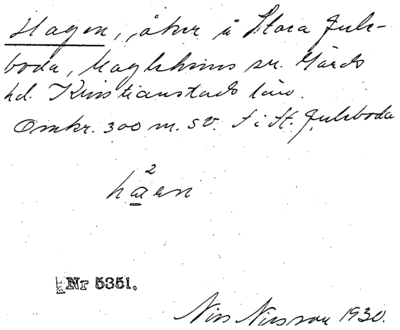 Hagen, åker å Stora Jule-
boda, Maglehems sn. Gärds
hd. Kristianstads län.
Omkr. 300 m. SV. f i St. Juleboda
2
hɑen
Nr 5351.
Nils Nilsson 1930.